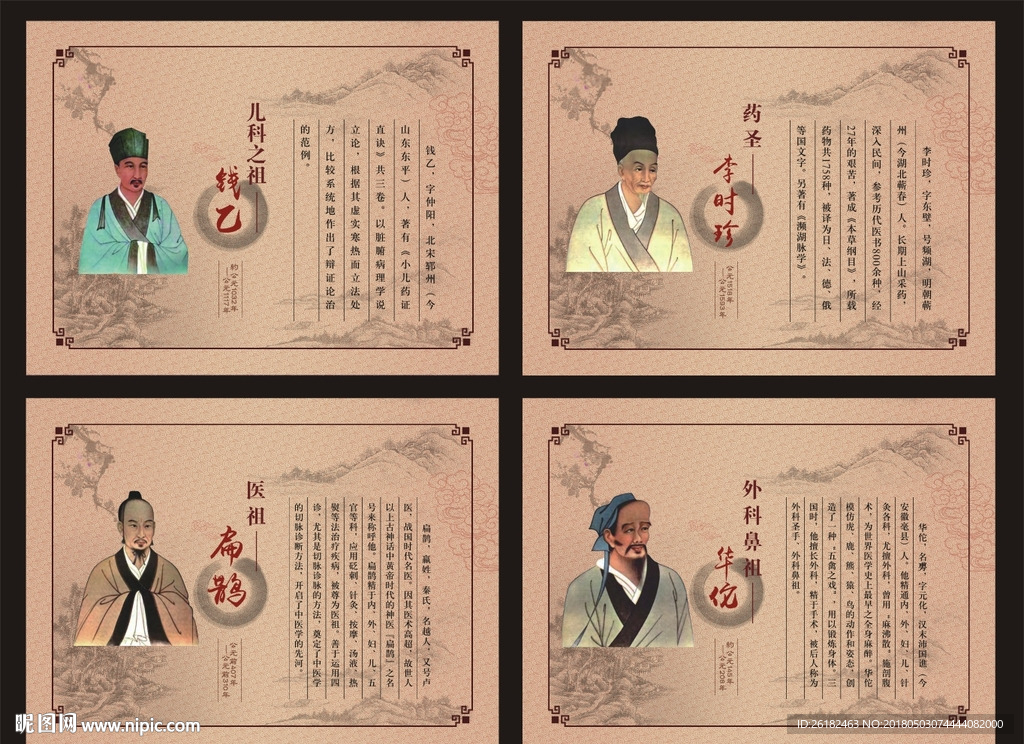 儿科之祖——
钱乙
约公元1032年
—公元1117年
钱乙，字仲阳，北宋郓州（今
山东东平）人，著有《小儿药证
直诀》共三卷。以脏腑病理学说
立论，根据其虚实寒热而立法处
方，比较系统地作出了辩证论治
的范例。
药圣——
李时珍
公元1518年
—公元1593年
李时珍，字东壁，号频湖，明朝蕲
州（今湖北蕲春）人。长期上山采药，
深入民间，参考历代医书800余种，经
27年的艰苦，著成《本草纲目》，所载
药物共1758种，被译为日、法、德、俄
等国文字。另著有《濒湖脉学》。
医祖——
扁鹊
公元前407年
—公元前310年
扁鹊，嬴姓，秦氏，名越人，又号卢
医，战国时代名医。因其医术高超，故世人
以上古神话中黄帝时代的神医“扁鹊”之名
号来称呼他。扁鹊精于内、外、妇、儿、五
官等科，应用砭刺、针灸、按摩、汤液、热
熨等法治疗疾病，被尊为医祖。善于运用四
诊，尤其是切脉诊脉的方法，奠定了中医学
的切脉诊断方法，开启了中医学的先河。
外科鼻祖——
华佗
约公元145年
—公元208年
华佗，名旉，字元化，汉末沛国谯（今
安徽亳县）人，他精通内、外、妇、儿、针
灸各科，尤擅外科，曾用“麻沸散”施剖腹
术，为世界医学史上最早之全身麻醉。华佗
模仿虎、鹿、熊、猿、鸟的动作和姿态，创
造了一种“五禽之戏”，用以锻炼身体。三
国时，他擅长外科，精于手术，被后人称为
外科圣手，外科鼻祖。
昵图网 www.nipic.com
ID:26182463 NO:20180503074444082000